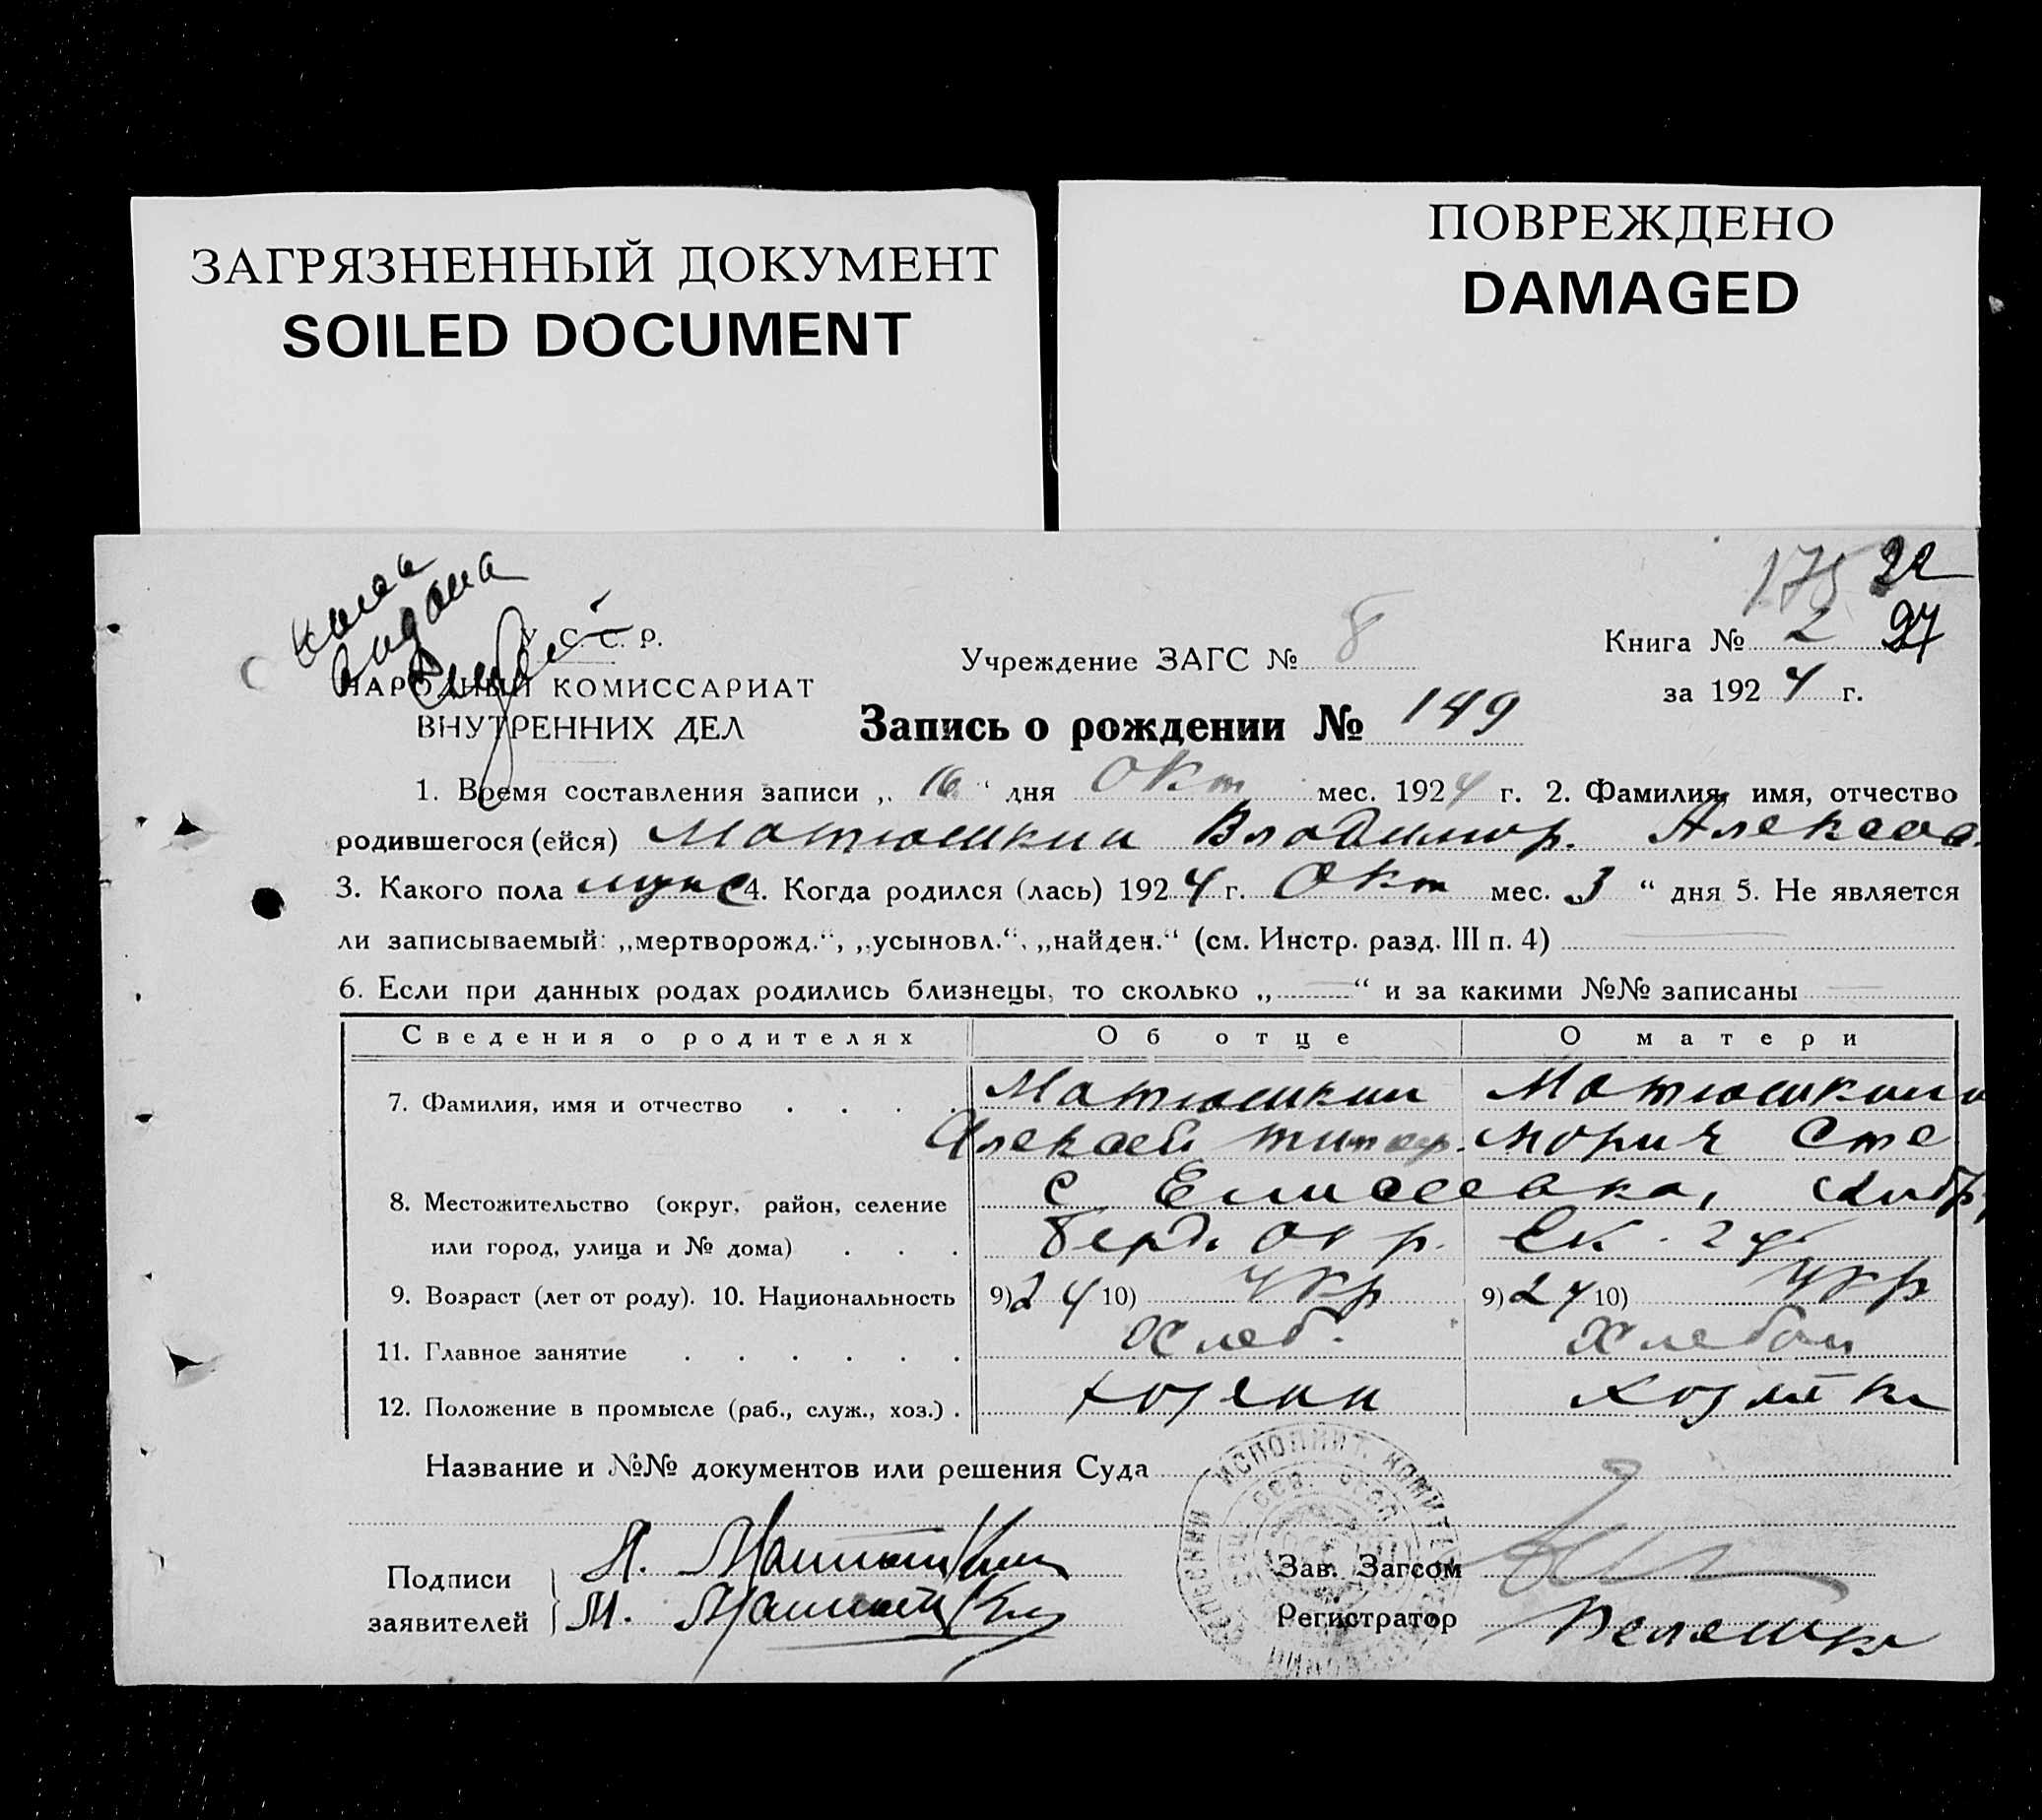 ЗАГРЯЗНЕННЫЙ ДОКУМЕНТ
SOILED DOCUMENT
ПОВРЕЖДЕНО
DAMAGED
175 22
27
У. С. С. Р.
НАРОДНЫЙ КОМИССАРИАТ
ВНУТРЕННИХ ДЕЛ
Учреждение ЗАГС № 8
Книга № 2
за 1924 г.
Запись о рождении № 149
1. Время составления записи „ 16 “ дня Окт мес. 1924 г. 2. Фамилия, имя, отчество
родившегося (ейся) Матюшкин Владимир. Алексее
3. Какого пола муж 4. Когда родился (лась) 1924 г. Окт мес. 3 “ дня 5. Не является
ли записываемый: „мертворожд.“, „усыновл.“, „найден.“ (см. Инстр. разд. III п. 4)
6. Если при данных родах родились близнецы, то сколько „ — “ и за какими №№ записаны —
Сведения о родителях Об отце О матери
7. Фамилия, имя и отчество . . . . Матюшкин Матюшкина
Алексей Сте
8. Местожительство (округ, район, селение с Елисеевка,
или город, улица и № дома) . . . Берд. окр. Ек. губ
9. Возраст (лет от роду). 10. Национальность 9) 24 10) Укр 9) 24 10) Укр
11. Главное занятие . . . . . . Хлеб. Хлебоп
12. Положение в промысле (раб., служ., хоз.) . хозяин хозяйка
Название и №№ документов или решения Суда
Подписи заявителей
А. Матюшкин
М. Матюшки
Зав. Загсом
Регистратор